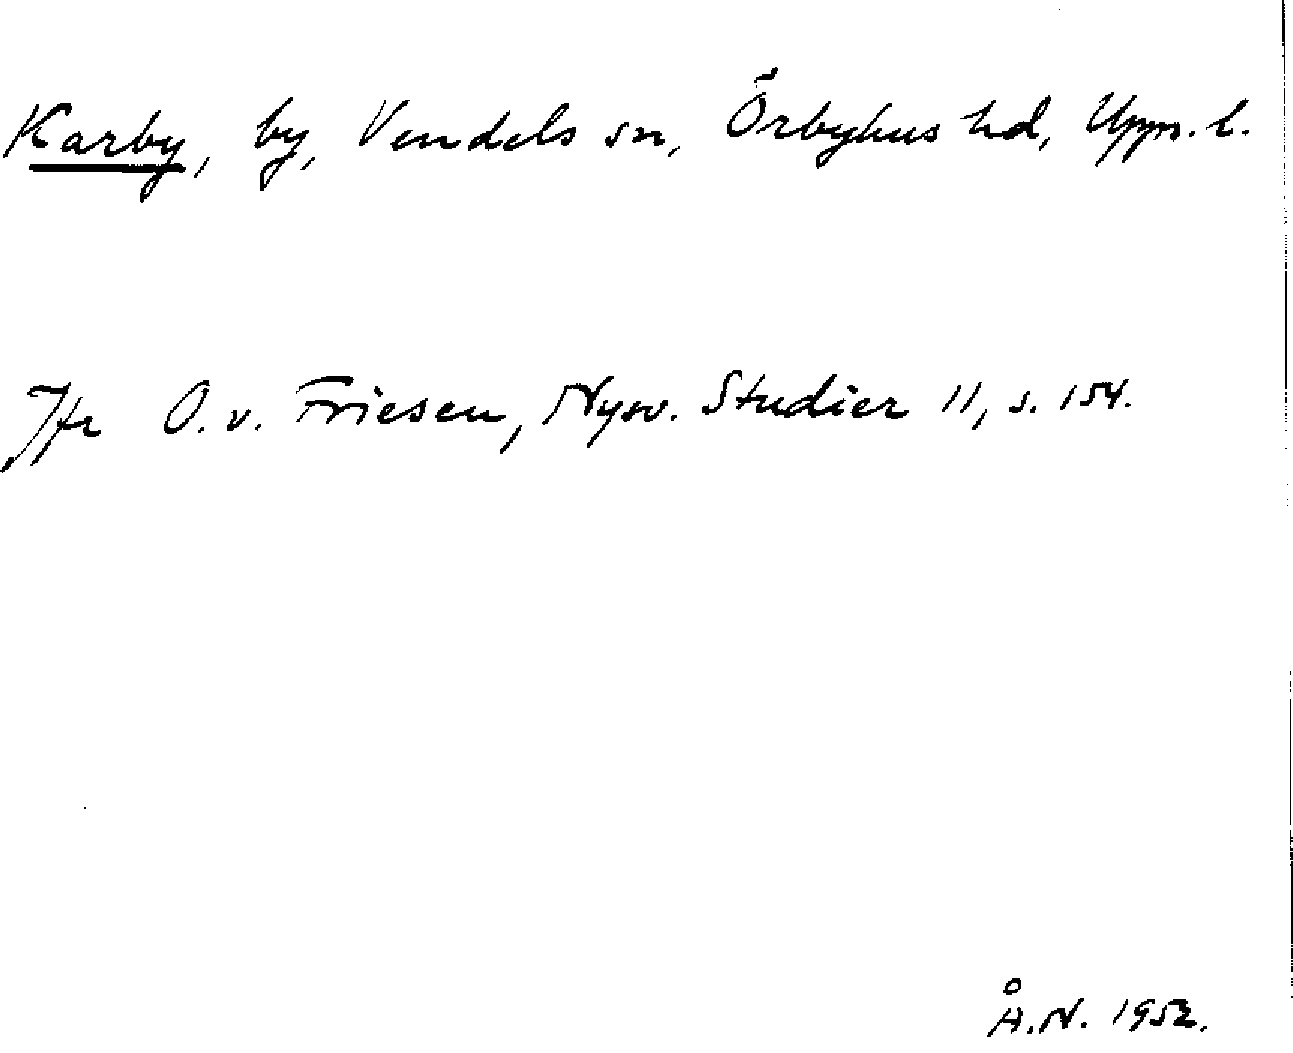 Karby, by, Vendels sn, Örbyhus hd, Upps. l.
Jfr O. v. Friesen, Nysv. Studier 11, s. 154.
Å. N. 1952.